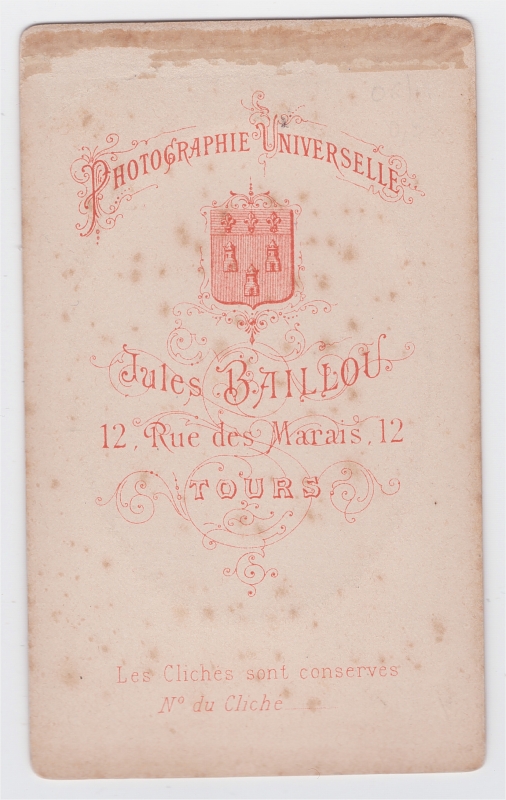 PHOTOGRAPHIE UNIVERSELLE
Jules BAILLOU
12, Rue des Marais, 12
TOURS
Les Clichés sont conservés
Nº du Cliché